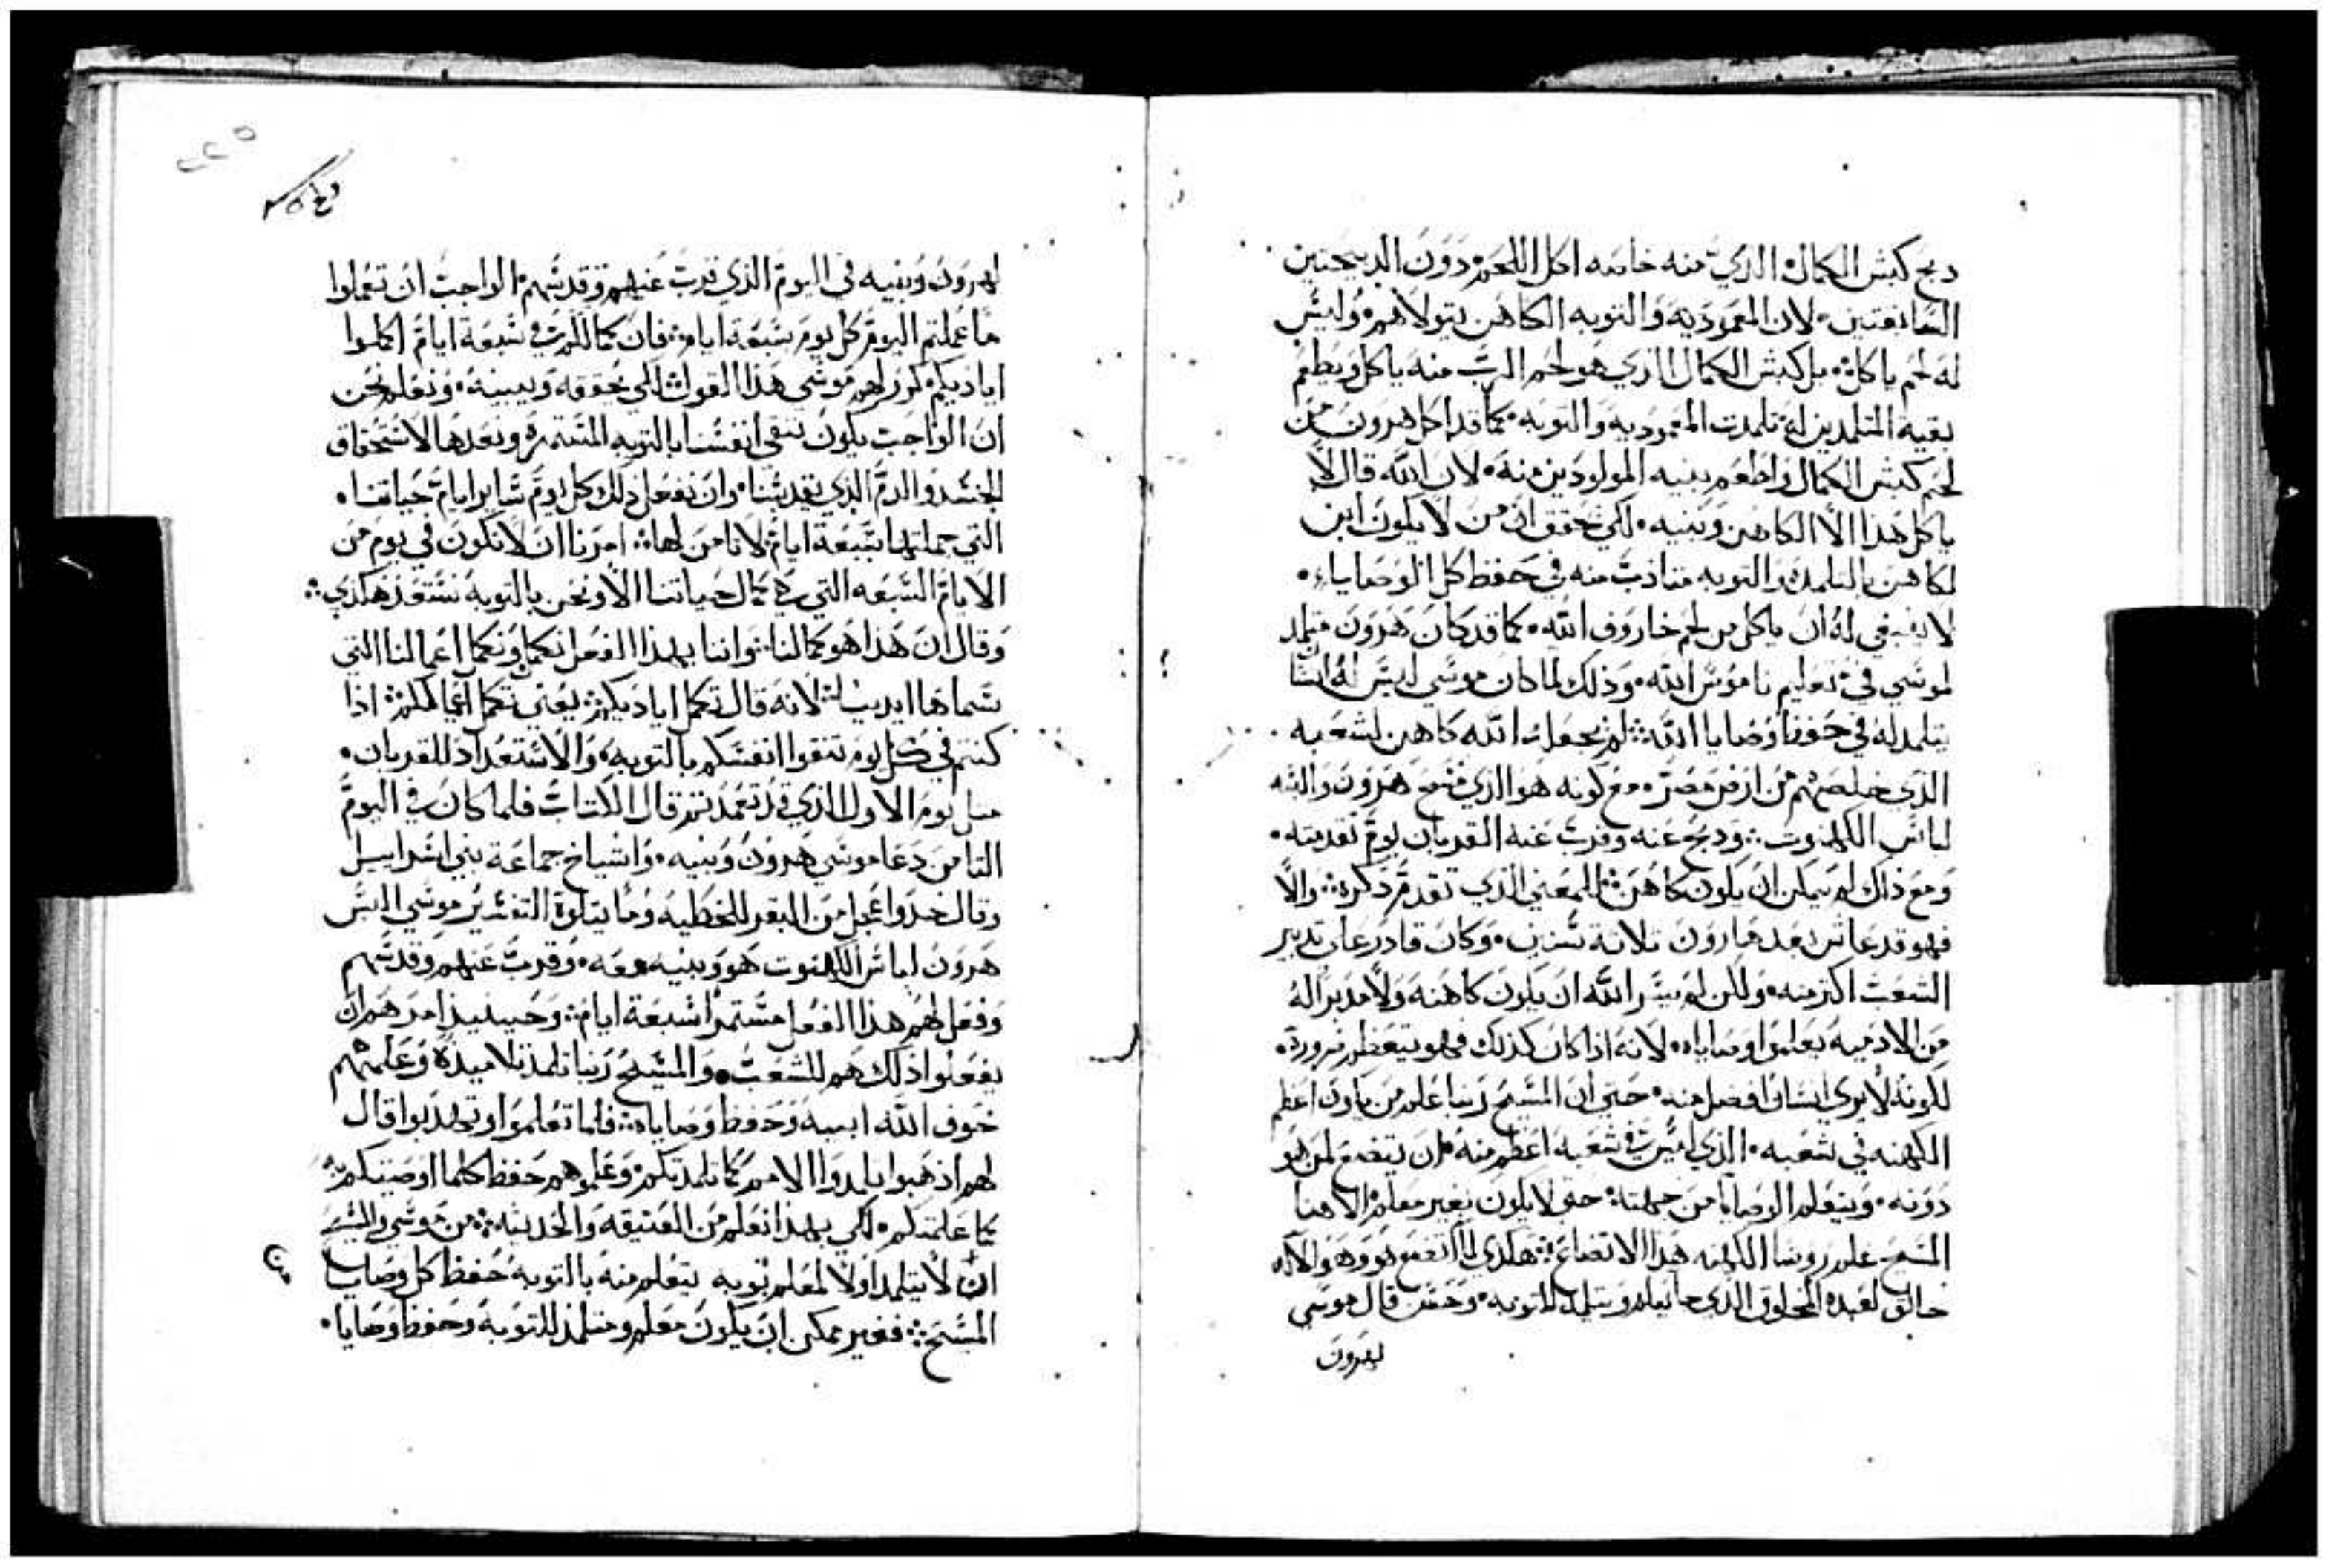 دبح كبش الكمال الذي منه خاصه اكل اللحم دون الدبيحتين
السابقتين لان المعموديه والتوبه الكاهن يتولاهم وليس
له لحم ياكل بل كبش الكمال الذي هو لحم الرب منه ياكل ويطعم
بقيه المتلمدين له تلمدت المعموديه والتوبه كما قد اكل هرون من
لحم كبش الكمال واطعم بنيه المولودين منه لان الله قال لا
ياكل هذا الا الكاهن وبنيه لكي نحقق ان من لا يكون ابن
لكاهن بالتلمده والتوبه متادب منه في حفظ كل الوصايا
لا ينبغي له ان ياكل من لحم خاروف الله كما قد كان هرون متلمد
لموسي في تعليم ناموس الله ودلك لما كان موسي ليس له انسان
يتلمد له في حفظ وصايا الله لم يجعله الله كاهن لشعبه
الذي خلصهم من ارض مصر مع كونه هو الذي مسح هرون والبسه
لباس الكهنوت ودبح عنه وقرب عنه القربان يوم تقدمته
ومع ذاك لم يمكن ان يكون كاهن للمعني الذي تقدم دكره والا
فهو قد عاش بعد هارون تلاتة سنين وكان قادر علي تدبير
الشعب اكتر منه ولكن لم يشر الله ان يكون كاهنه ولا مدبرا له
من الادميه يعلمه اوصاياه لانه اذا كان كذلك فهو يتعظم ضرورة
لكونه لا يري انسان افضل منه حتي ان المسيح ربنا علم من يكون اعظم
الكهنه في شعبه الذي ليس في شعبه اعظم منه ان يتضع لمن هو
دونه ويتعلم الوصايا من جملته حتي لا يكون بغير معلم الاهنا
المسيح علم روسا الكهنه هذا الاتضاع هكدي لما اتضع هو وهو الاله
خالق لعبده المخلوق الذي جا يعلم ويتلمد للتوبه وحسن قال موسي
لهرون
لهرون وبنيه في اليوم الذي قرب عنهم وقدسهم الواجب ان تعملوا
ما عملتم اليوم كل يوم سبعة ايام فان كمالكم في سبعة ايام اكملوا
اياديكم كرر لهم موسي هذا القول لكي يحققه ويبينه ونعلم نحن
ان الواجب يكون ننقي انفسنا بالتوبه المستمره وبعدها الاستحقاق
الجسد والدم الذي يقدسنا وان نفعل ذلك كل يوم ساير ايام حياتنا
التي جملتها سبعة ايام لا تامن لها امرنا ان لا نكون في يوم من
الايام السبعه التي هي كمال حياتنا الا ونحن بالتوبه نستعد هكدي
وقال ان هذا هو كمالنا واننا بهذا الفعل نكمل وتكمل اعمالنا التي
سماها ايدينا لانه قال تكمل اياديكم يعني تكمل اعمالكم اذا
كنتم في كل يوم تنقوا انفسكم بالتوبه والاستعداد للقربان
متل يوم الاول الذي قد تعمدتم قال الكتاب فلما كان في اليوم
التامن دعا موسي هرون وبنيه واشياخ جماعة بني اسراييل
وقال خدوا عجل من البقر للخطيه وما يتلوه التفسير موسي البس
هرون لباس الكهنوت هو وبنيه معه وقرب عنهم وقدسهم
وفعل لهم هذا الفعل مستمرا سبعة ايام وحينيذ امرهم ان
يفعلوا ذلك هم للشعب والمسيح ربنا تلمد تلاميده وعلمهم
خوف الله ابيه وحفظ وصاياه فلما تعلموا وتهدبوا قال
لهم اذهبوا تلمدوا الامم كما تلمدتكم وعلموهم حفظ كلما اوصيتكم به
كما علمتكم لكي بهذا نعلم من العتيقه والحديثه من موسي والمسيح
ان لا يتلمد اولا لمعلم توبه يتعلم منه بالتوبه حفظ كل وصايا
المسيح فغير ممكن ان يكون معلم ومتلمد للتوبه وحفظ وصايا